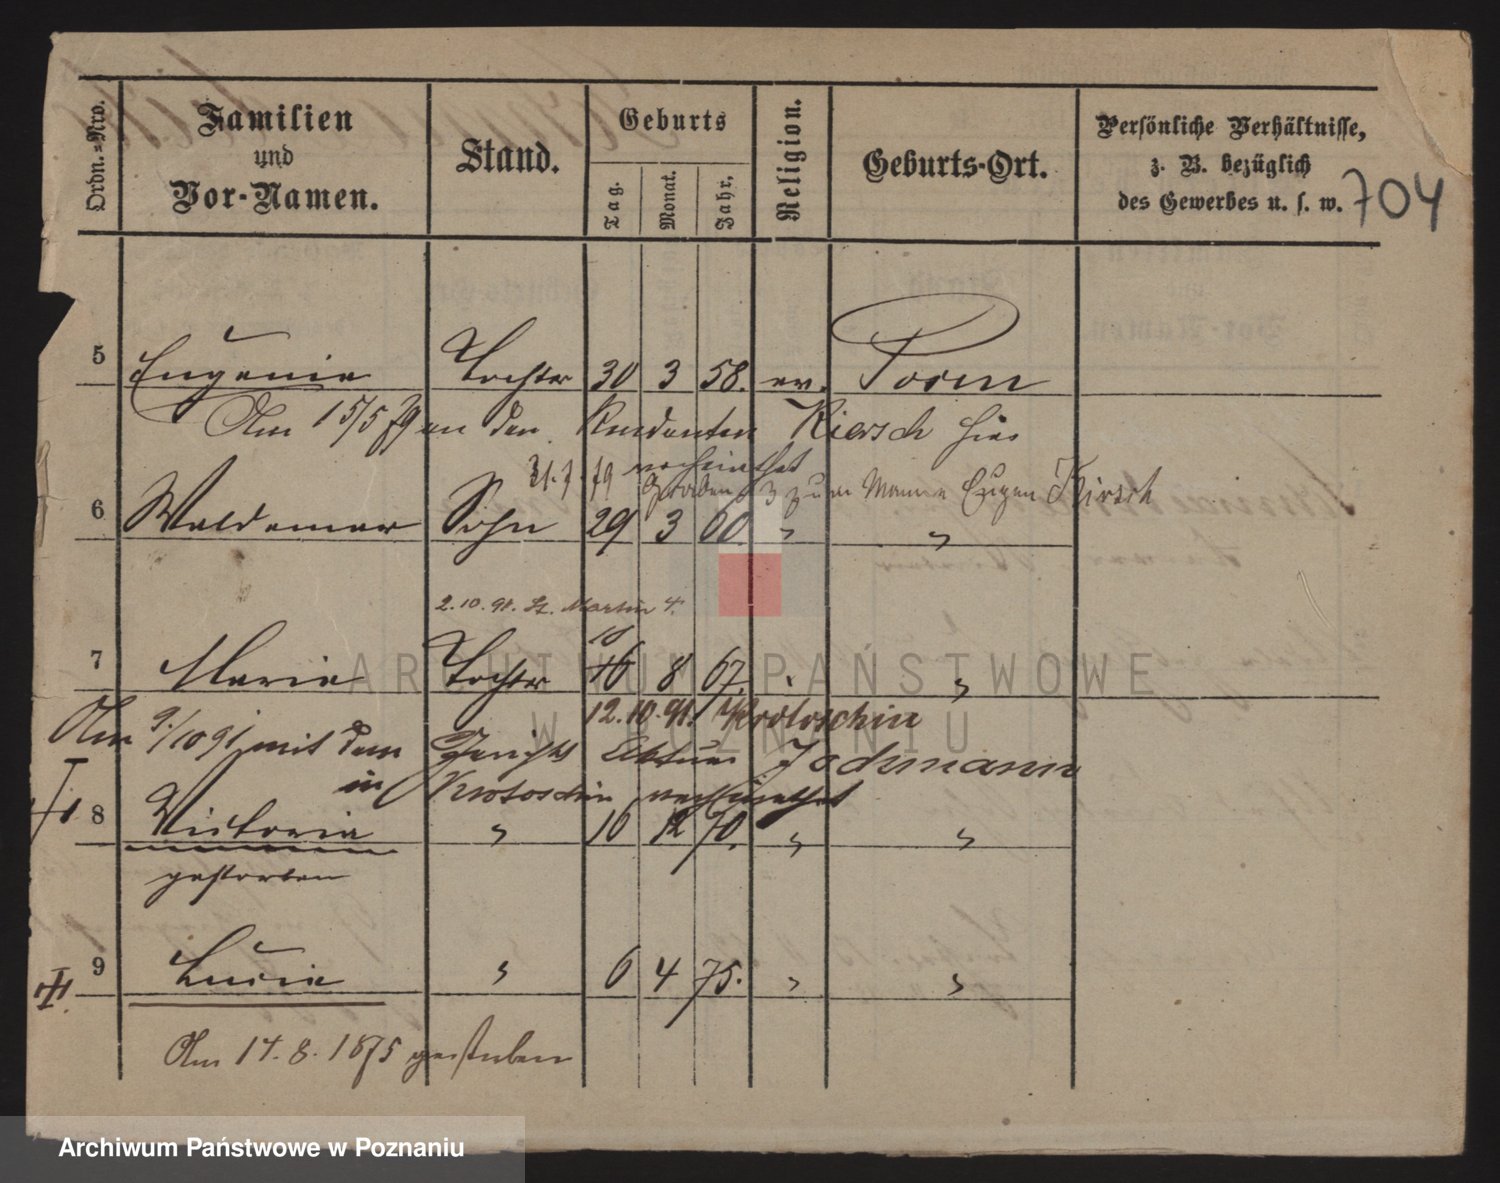 Ordn.-Nro.
Familien
und
Vor-Namen.
Stand.
Geburts
Tag.
Monat.
Jahr.
Religion.
Geburts-Ort.
Persönliche Verhältnisse,
z. B. bezüglich
des Gewerbes u. s. w.
704
5 Eugenie Tochter 30 3 58. ev. Posen
Am 15/5 79 an den Rendanten Kiersch hier
verheirathet
31.7.79 Graben 3 zum Manne Eugen Kirsch
6 Waldemar Sohn 29 3 60. " "
2.10.91. St. Martin 4.
18
7 Maria Tochter 16 8 67. " "
12.10.91. Krotoschin
Am 9/10 91 mit dem Gerichts Aktuar Jochmann
in Krotoschin verheirathet
8 Victoria " 16 12 70. " "
gestorben
9 Lucie " 6 4 75. " "
Am 14.8.1875 gestorben
ARCHIWUM PAŃSTWOWE
W POZNANIU
Archiwum Państwowe w Poznaniu